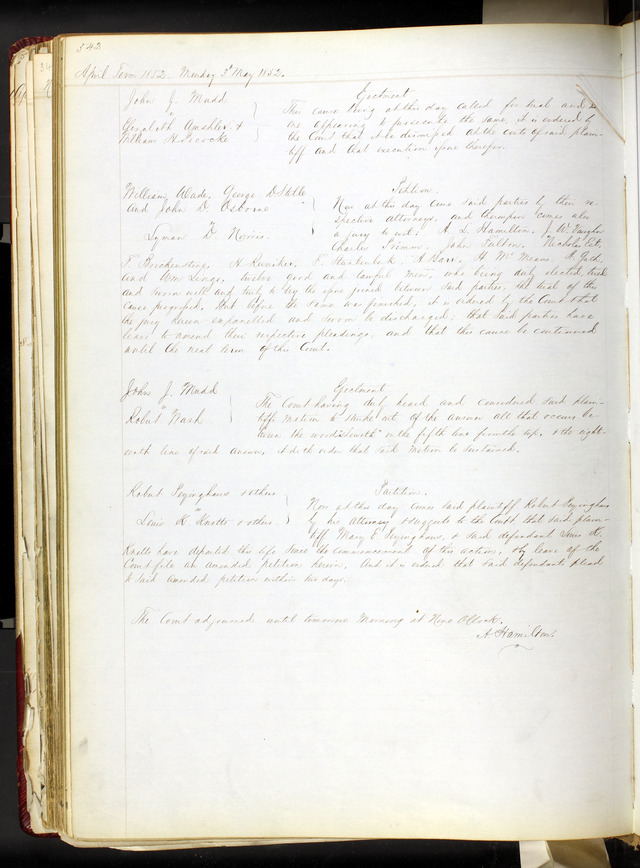 542
April Term 1852. Monday 3d May 1852.
John J. Mudd
vs
Elizabeth &
William H. Pococke
Ejectment
This cause being at this day called for trial and no
one appearing to prosecute the same, it is ordered by
the Court that it be dismissed at the costs of said plain-
tiff and that execution issue therefor.
William Wade, George D.
and John D. Osborne
vs
Lyman D. Norris.
Petition.
Now at this day come said parties by their re-
spective attorneys, and thereupon comes also
a jury to wit: A. L. Hamilton, J. W. Vaughn
Charles Primm, John Fallon, Nicholas
F. H. F. A. Carr, H. Mc Means,
and Wm Longe, twelve good and lawful men, who being duly elected, tried
and sworn well and truly to try the issue joined between said parties, the trial of this
cause progressed. But before the same was finished, it is ordered by the Court that
the jury herein empanelled and sworn be discharged; that said parties have
leave to amend their respective pleadings, and that this cause be continued
until the next term of this Court.
John J. Mudd
vs
Robert Wash
Ejectment
The Court having duly heard and considered said plain-
tiffs motion to strike out of the answer all that occurs be-
tween the word in the fifth line from the top, & the eight-
eenth line of said answer, doth order that said motion be sustained.
Robert & others
vs
Louis K. Knotts & others
Partition.
Now at this day comes said plaintiff Robert
by his Attorney & suggests to the Court that said plain-
tiff Mary E. & said defendant Louis K.
Knotts have departed this life since the commencement of this action, & by leave of the
Court file an amended petition herein. And it is ordered that said defendants plead
to said amended petition within ten days.
The Court adjourned until tomorrow morning at Nine O'Clock.
A. Hamilton.